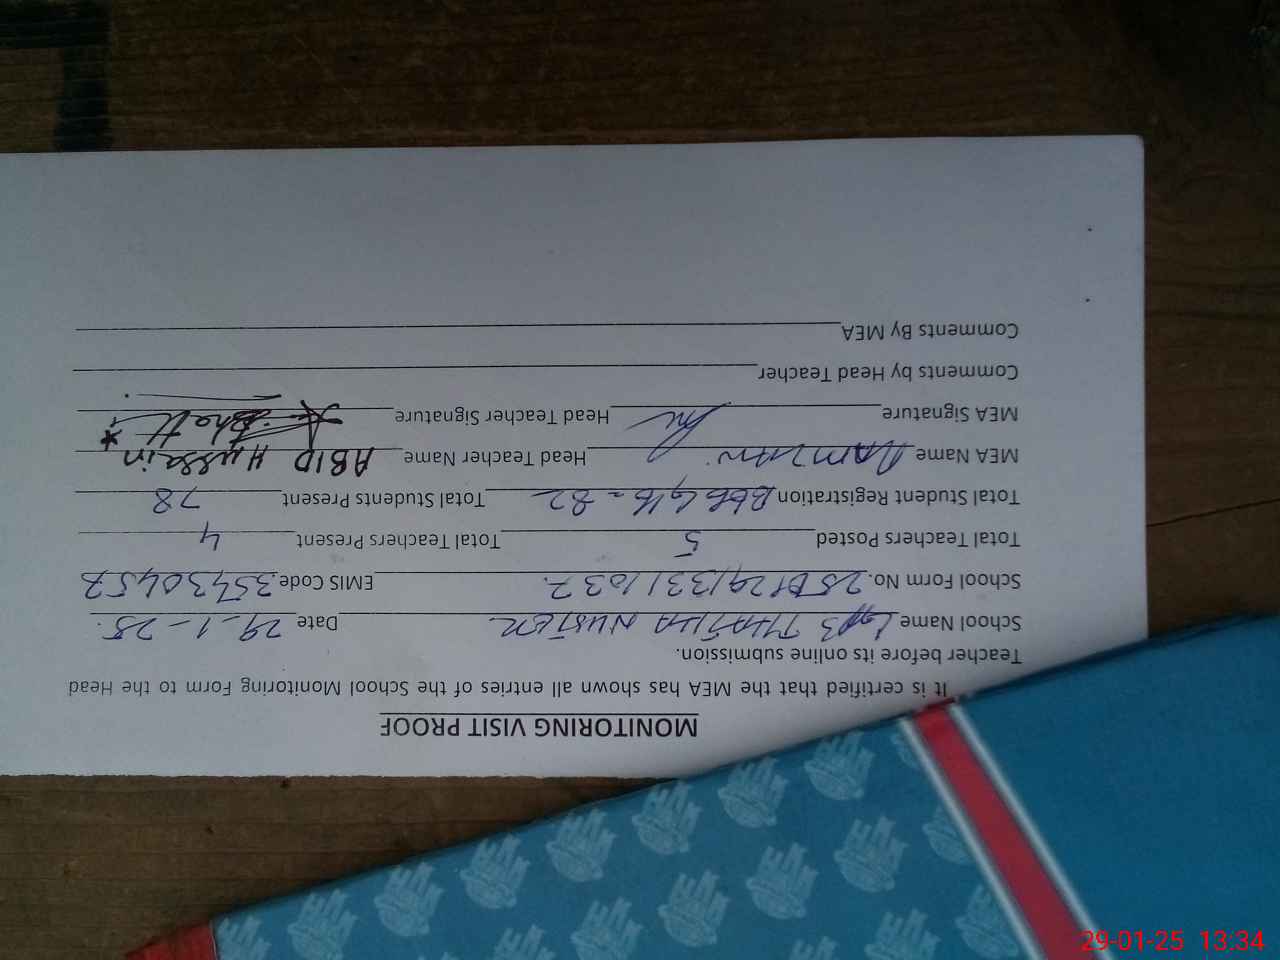 MONITORING VISIT PROOF
It is certified that the MEA has shown all entries of the School Monitoring Form to the Head
Teacher before its online submission.
School Name THATHA Date 29-1-25.
School Form No. EMIS Code. 35430457
Total Teachers Posted 5 Total Teachers Present 4
Total Student Registration = 82 Total Students Present 78
MEA Name Head Teacher Name ABID Hussain
MEA Signature Head Teacher Signature Bhatti
Comments by Head Teacher
Comments By MEA
29-01-25 13:34